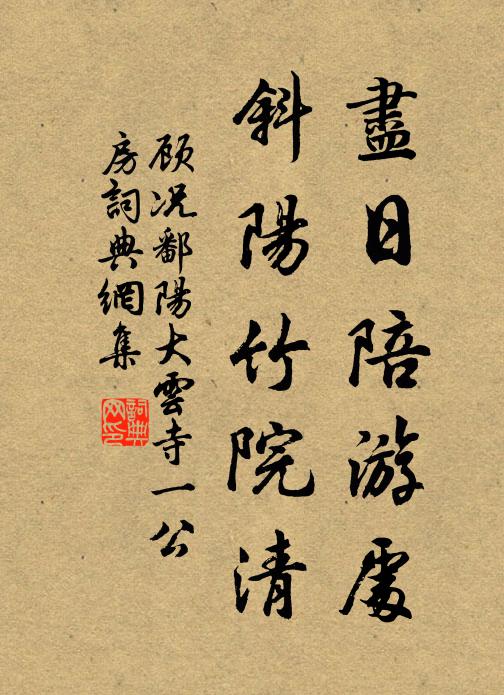 盡日陪游處
斜陽竹院清
顧况鄱陽大雲寺一公
房詞典網集
詞典
网印